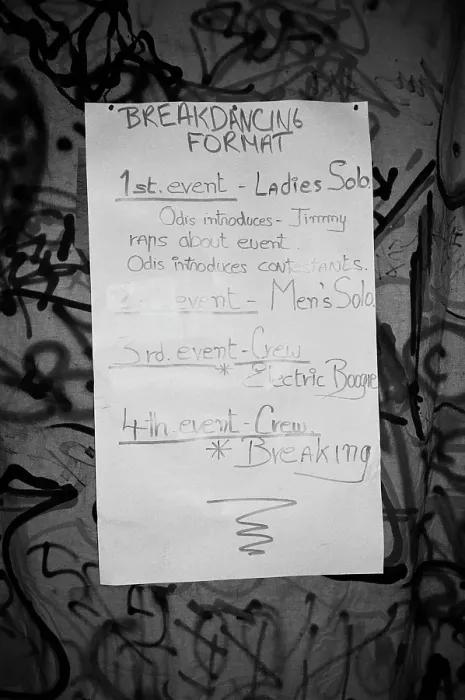 BREAKDANCING
FORMAT
1st. event - Ladies Solo.
Odis introduces - Jimmy
raps about event.
Odis introduces contestants.
event - Men's Solo.
3rd. event - Crew
* Electric Boogie
4th event - Crew.
* Breaking